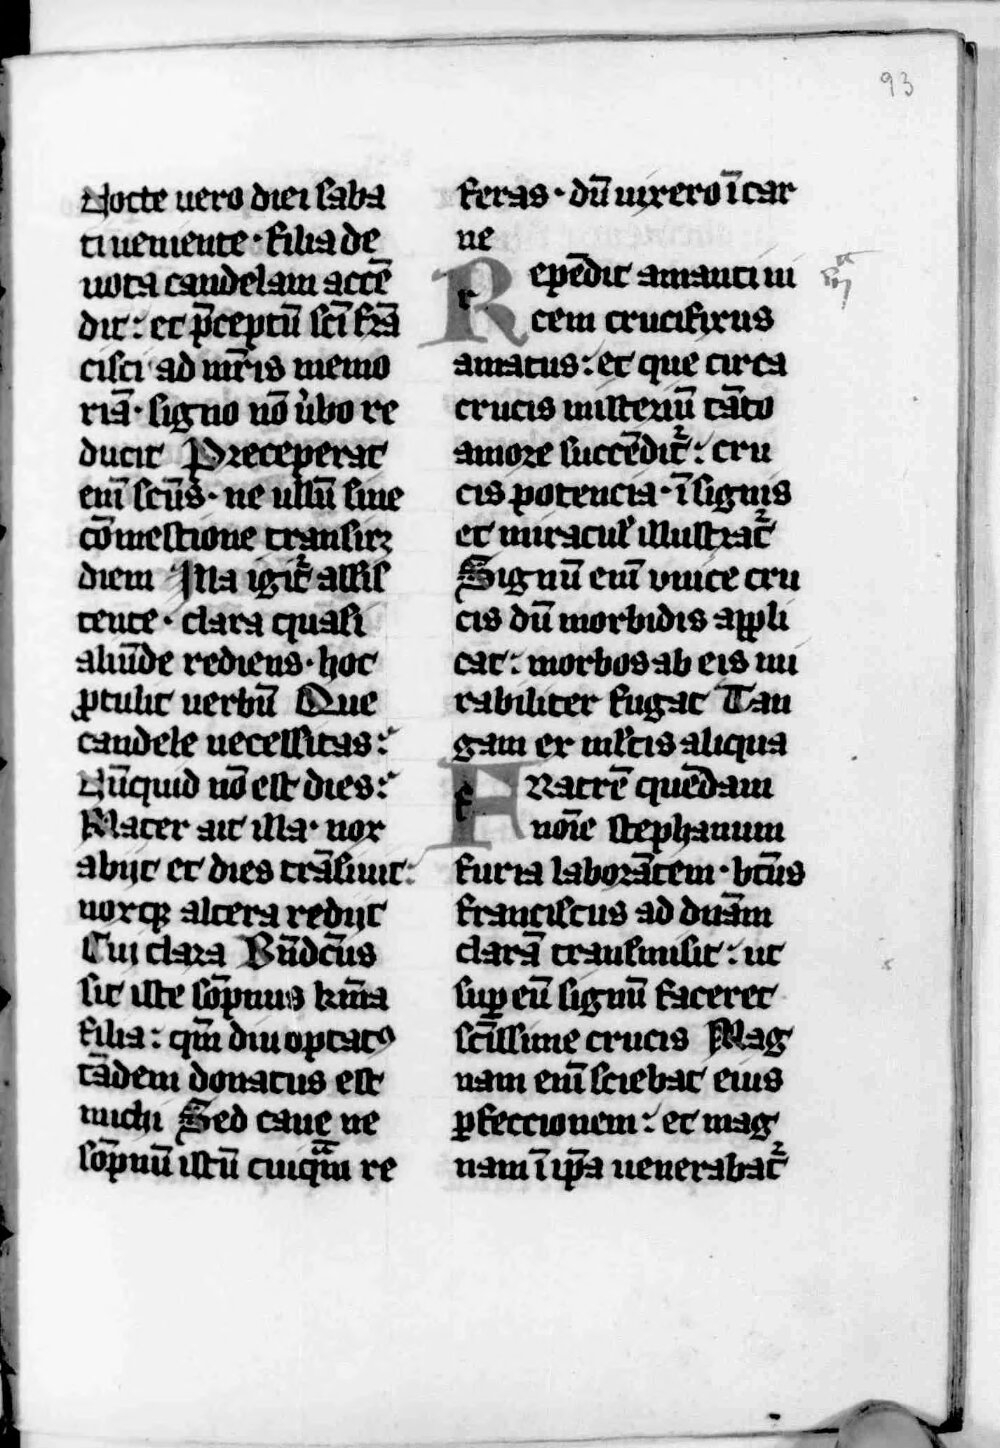 93
Nocte uero diei saba
ti ueniente · filia de
uota candelam accē
dit : et p̄ceptū sc̄i frā
cisci ad mr̄is memo
riā · signo nō ủbo re
ducit Preceperat
eni̅ sc̄us · ne ullū sine
cōmestione transirꝫ
diem Illa igit᷑ assis
tente · clara quasi
aliūde rediens · hoc
ꝓtulit uerbū Que
candele necessitas :
Nūquid nō est dies :
Mater ait illa · nox
abijt et dies trāsiuit :
noxqꝫ altera redijt
Cui clara Bn̄dc̄us
sit iste sōpnus kr̄ma
filia : qm̄ diu optatꝰ
tādem donatus est
michi Sed caue ne
sōpnū istū cuiqᷓm re
feras · dū uixero ī car
ne
Repēdit amanti ui
cem crucifixus
amatus : et que circa
crucis misteriū tāto
amore succēdit᷑ : cru
cis potencia · ī signis
et miracul᷑ illustrat᷑
Signū eni̅ viuice cru
cis dū morbidis appli
cat : morbos ab eis mi
rabiliter fugat Tan
gam ex ml̄tis aliqua
Fratrē quēdam
noīe stephanum
furia laborātem · bt̄us
franciscus ad dn̄am
clarā transmisit : ut
suꝑ eū signū faceret
sc̄issime crucis Mag
nam eni̅ sciebat eius
ꝑfeccionem : et mag
nam ī ip̄a uenerabat᷑